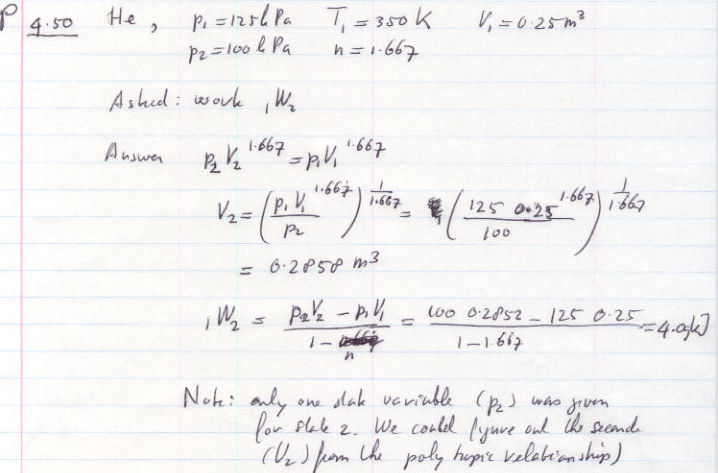 P 4.50 He, p₁ = 125 kPa T₁ = 350 K V₁ = 0.25 m³
p₂ = 100 kPa n = 1.667
Asked: work ₁W₂
Answer p₂ V₂^1.667 = p₁ V₁^1.667
V₂ = (p₁ V₁^1.667 / p₂)^(1/1.667) = (125 0.25^1.667 / 100)^(1/1.667)
= 0.2858 m³
₁W₂ = (p₂V₂ − p₁V₁) / (1 − n) = (100 0.2852 − 125 0.25) / (1 − 1.667) = 4.09 kJ
Note: only one state variable (p₂) was given
for state 2. We could figure out the second
(V₂) from the polytropic relationship)